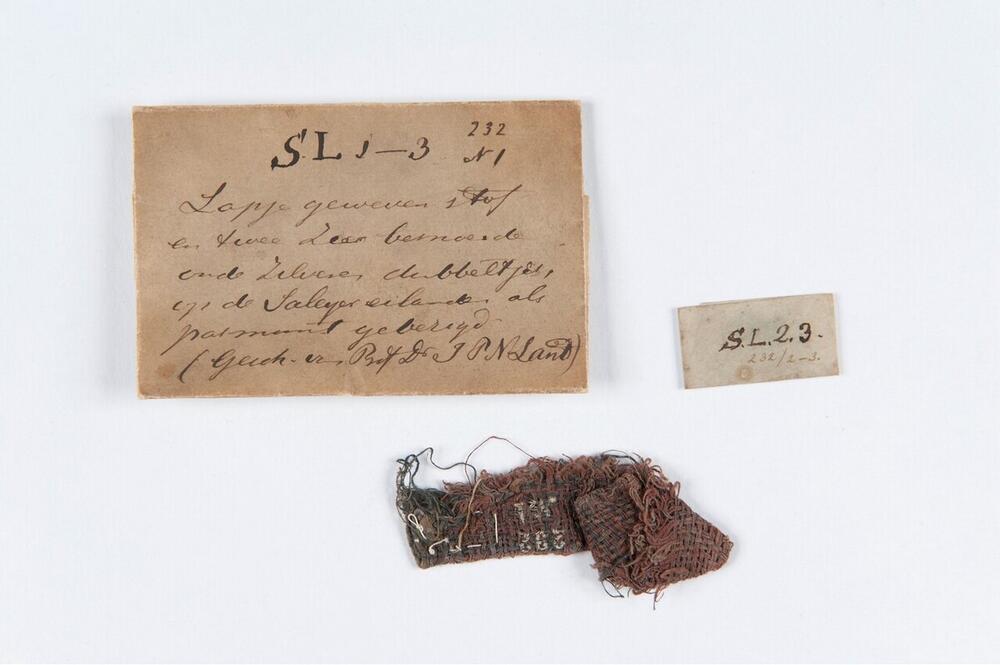 S.L 1-3
232
N 1
Lapje geweven stof
en twee zeer besnoeide
oude zilveren dubbeltjes,
op de Saleyer eilanden als
pasmunt gebezigd
(Gesch. van Prof. Dr. J P N. Land)
S.L.2.3.
232/2-3.